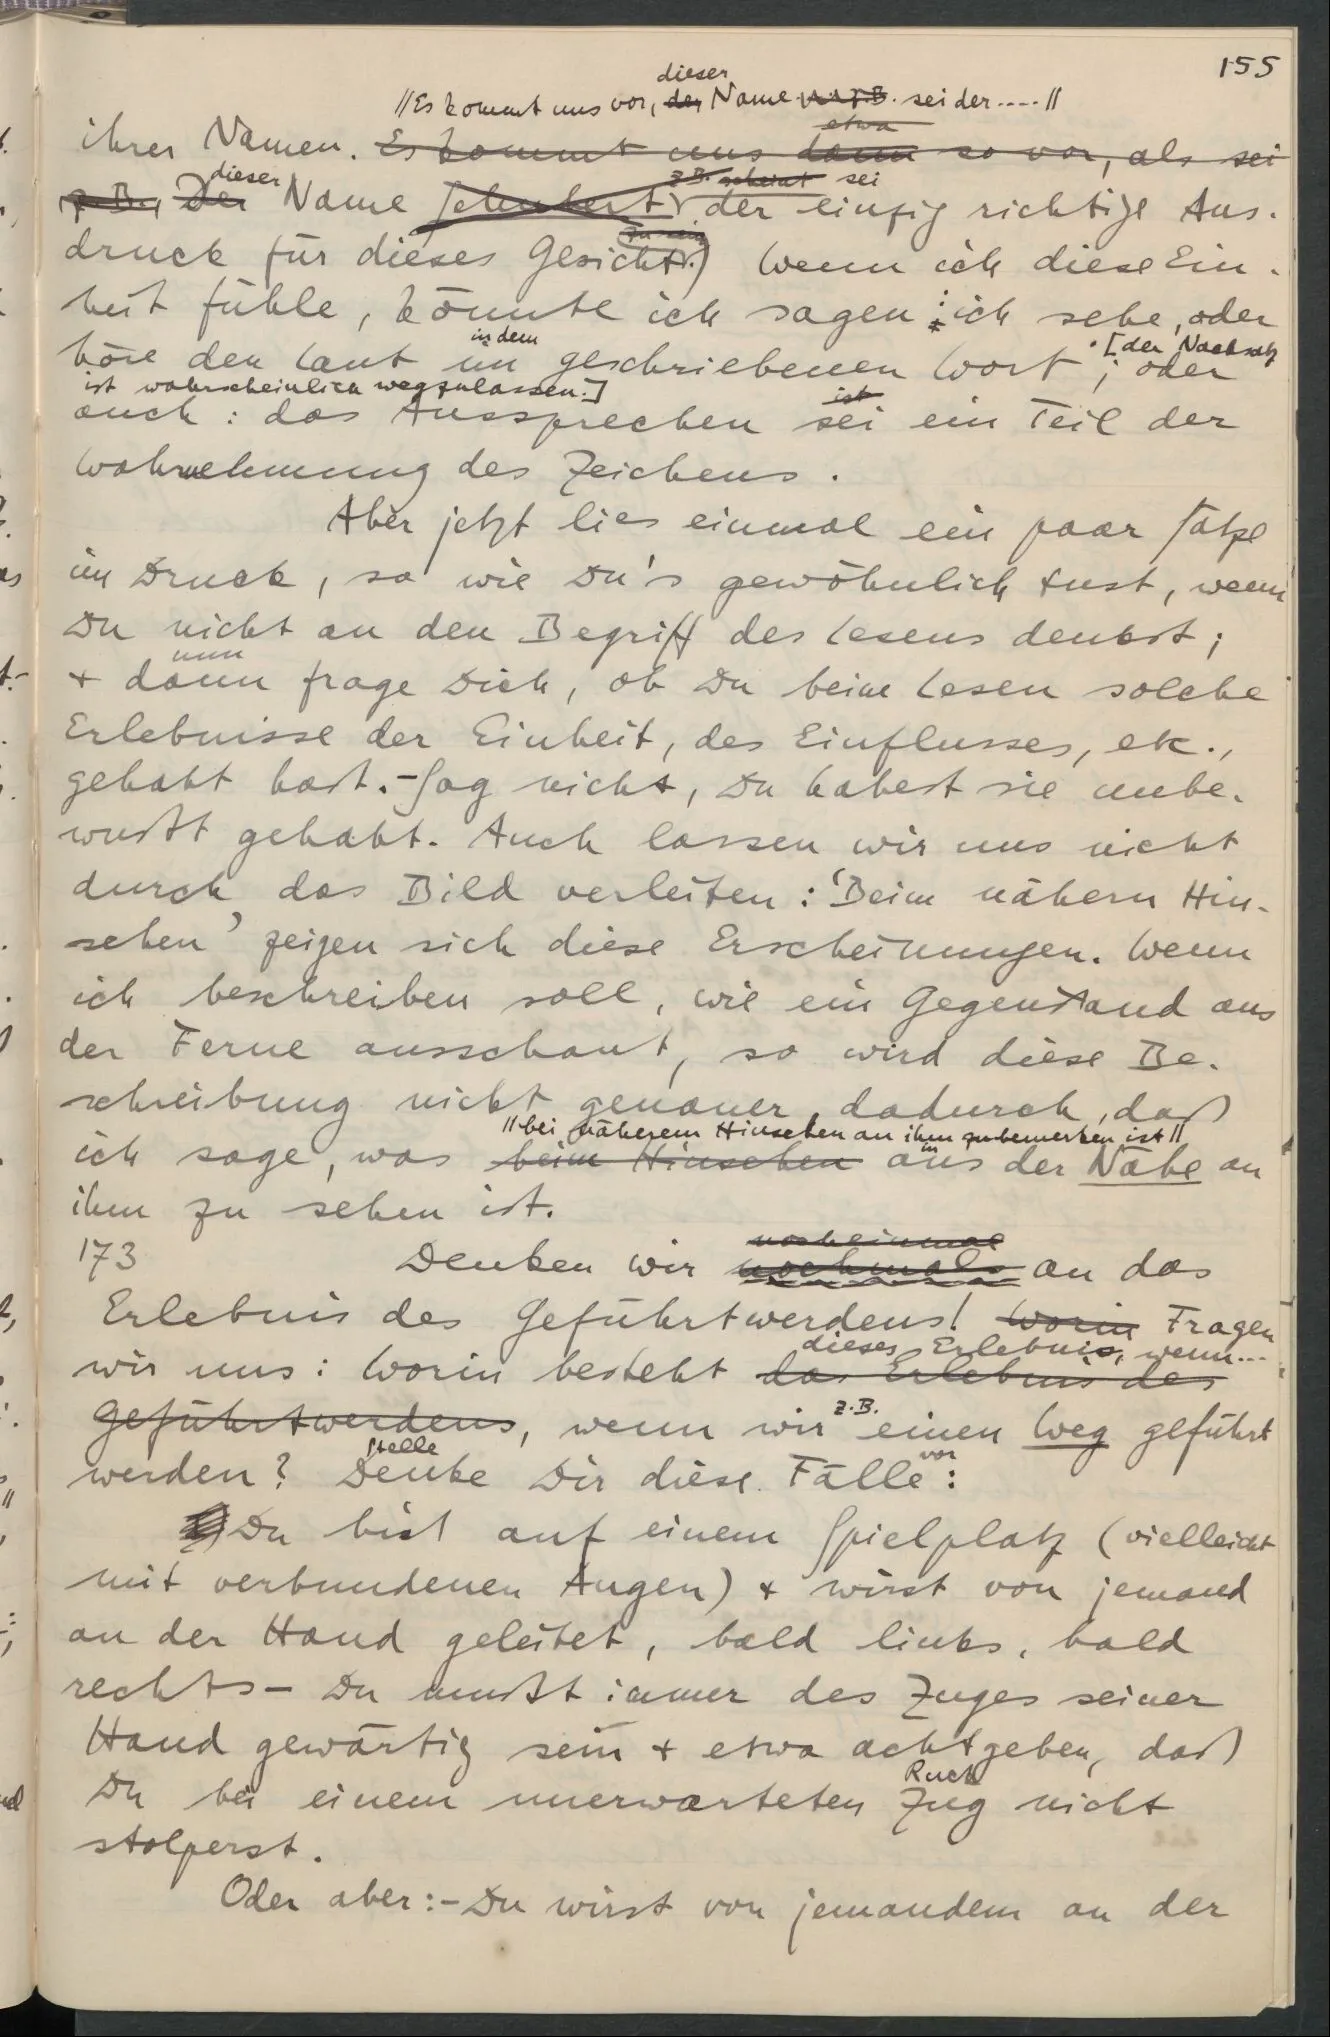 155
dieser
//Es kommt uns vor, der Name z.B. sei der ..... //
etwa
ihrer Namen. Es kommt uns dann so vor, als sei
dieser z.B. scheint sei
z.B. Der Name Schubert der einzig richtige Aus-
zu sein
druck für dieses Gesicht.) Wenn ich diese Ein-
heit fühle, könnte ich sagen: ich sehe, oder
in dem . [der Nachsatz
höre den Laut im geschriebenen Wort; oder
ist wahrscheinlich wegzulassen.]
ist
auch: das Aussprechen sei ein Teil der
Wahrnehmung des Zeichens.
Aber jetzt lies einmal ein paar Sätze
im Druck, so wie Du's gewöhnlich tust, wenn
Du nicht an den Begriff des Lesens denkst;
nun
+ dann frage Dich, ob Du beim Lesen solche
Erlebnisse der Einheit, des Einflusses, etc.,
gehabt hast. – Sag nicht, Du habest sie unbe-
wußt gehabt. Auch lassen wir uns nicht
durch das Bild verleiten: 'Beim nähern Hin-
sehen' zeigen sich diese Erscheinungen. Wenn
ich beschreiben soll, wie ein Gegenstand aus
der Ferne ausschaut, so wird diese Be-
schreibung nicht genauer, dadurch, daß
//bei näherem Hinsehen an ihm zu bemerken ist//
in
ich sage, was beim Hinsehen aus der Nähe an
ihm zu sehen ist.
noch einmal
173 Denken wir nochmals an das
Erlebnis des Geführtwerdens! Worin Fragen
dieses Erlebnis, wenn...
wir uns: Worin besteht das Erlebnis des
z.B.
Geführtwerdens, wenn wir einen Weg geführt
Stelle vor
werden? Denke Dir diese Fälle:
Du bist auf einem Spielplatz (vielleicht
mit verbundenen Augen) + wirst von jemand
an der Hand geleitet, bald links, bald
rechts – Du mußt immer des Zuges seiner
Hand gewärtig sein + etwa achtgeben, daß
Ruck
Du bei einem unerwarteten Zug nicht
stolperst.
Oder aber: – Du wirst von jemandem an der